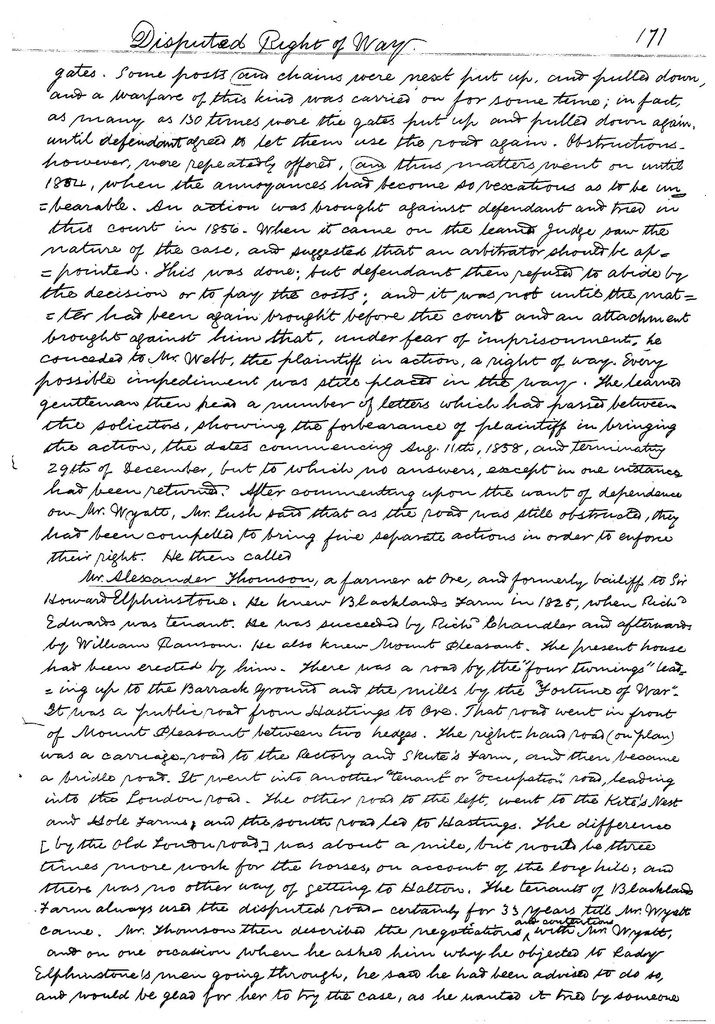 Disputed Right of Way. 171
gates. Some posts and chains were next put up, and pulled down,
and a warfare of this kind was carried on for some time; in fact,
as many as 130 times were the gates put up and pulled down again,
until defendant agreed to let them use the road again. Obstructions,
however, were repeatedly offered, and thus matters went on until
1854, when the annoyances had become so vexatious as to be un=
=bearable. An action was brought against defendant and tried in
this court in 1856. When it came on the learnd Judge saw the
nature of the case, and suggested that an arbitrator should be ap=
=pointed. This was done; but defendant then refused to abide by
the decision or to pay the costs; and it was not until the mat=
=ter had been again brought before the court and an attachment
brought against him that, under fear of imprisonment, he
conceded to Mr. Webb, the plaintiff in action, a right of way. Every
possible impediment was still placed in the way. The learned
gentleman then read a number of letters which had passed between
the solicitors, showing the forbearance of plaintiff in bringing
the action, the dates commencing Aug. 11th, 1858, and terminating
29th of December, but to which no answers, except in one instance
had been returned. After commenting upon the want of dependence
on Mr. Wyatt, Mr. Lush said that as the road was still obstructed, they
had been compelled to bring five separate actions in order to enforce
their right. He then called
Mr. Alexander Thomson, a farmer at Ore, and formerly bailiff to Sir
Howard Elphinstone. He knew Blacklands Farm in 1825, when Richd
Edwards was tenant. He was succeeded by Richd Chandler and afterwards
by William Ransom. He also knew Mount Pleasant. The present house
had been erected by him. There was a road by the "four turnings" lead=
=ing up to the Barrack Ground and the mills by the "Fortune of War".
It was a public road from Hastings to Ore. That road went in front
of Mount Pleasant between two hedges. The right-hand road (on plan)
was a carriage-road to the Rectory and Skute's Farm, and then became
a bridle road. It went into another "tenant" or "occupation" road, leading
into the London road. The other road to the left, went to the Kite's Nest
and Hole Farms; and the south road led to Hastings. The difference
[by the old London road] was about a mile, but would be three
times more work for the horses, on account of the long hill; and
there was no other way of getting to Halton. The tenants of Blackland
Farm always used the disputed road – certainly for 33 years till Mr. Wyatt
came. Mr. Thomson then described the negotiations and contentions with Mr. Wyatt,
and on one occasion when he asked him why he objected to Lady
Elphinstone's men going through, he said he had been advised to do so,
and would be glad for her to try the case, as he wanted it tried by someone